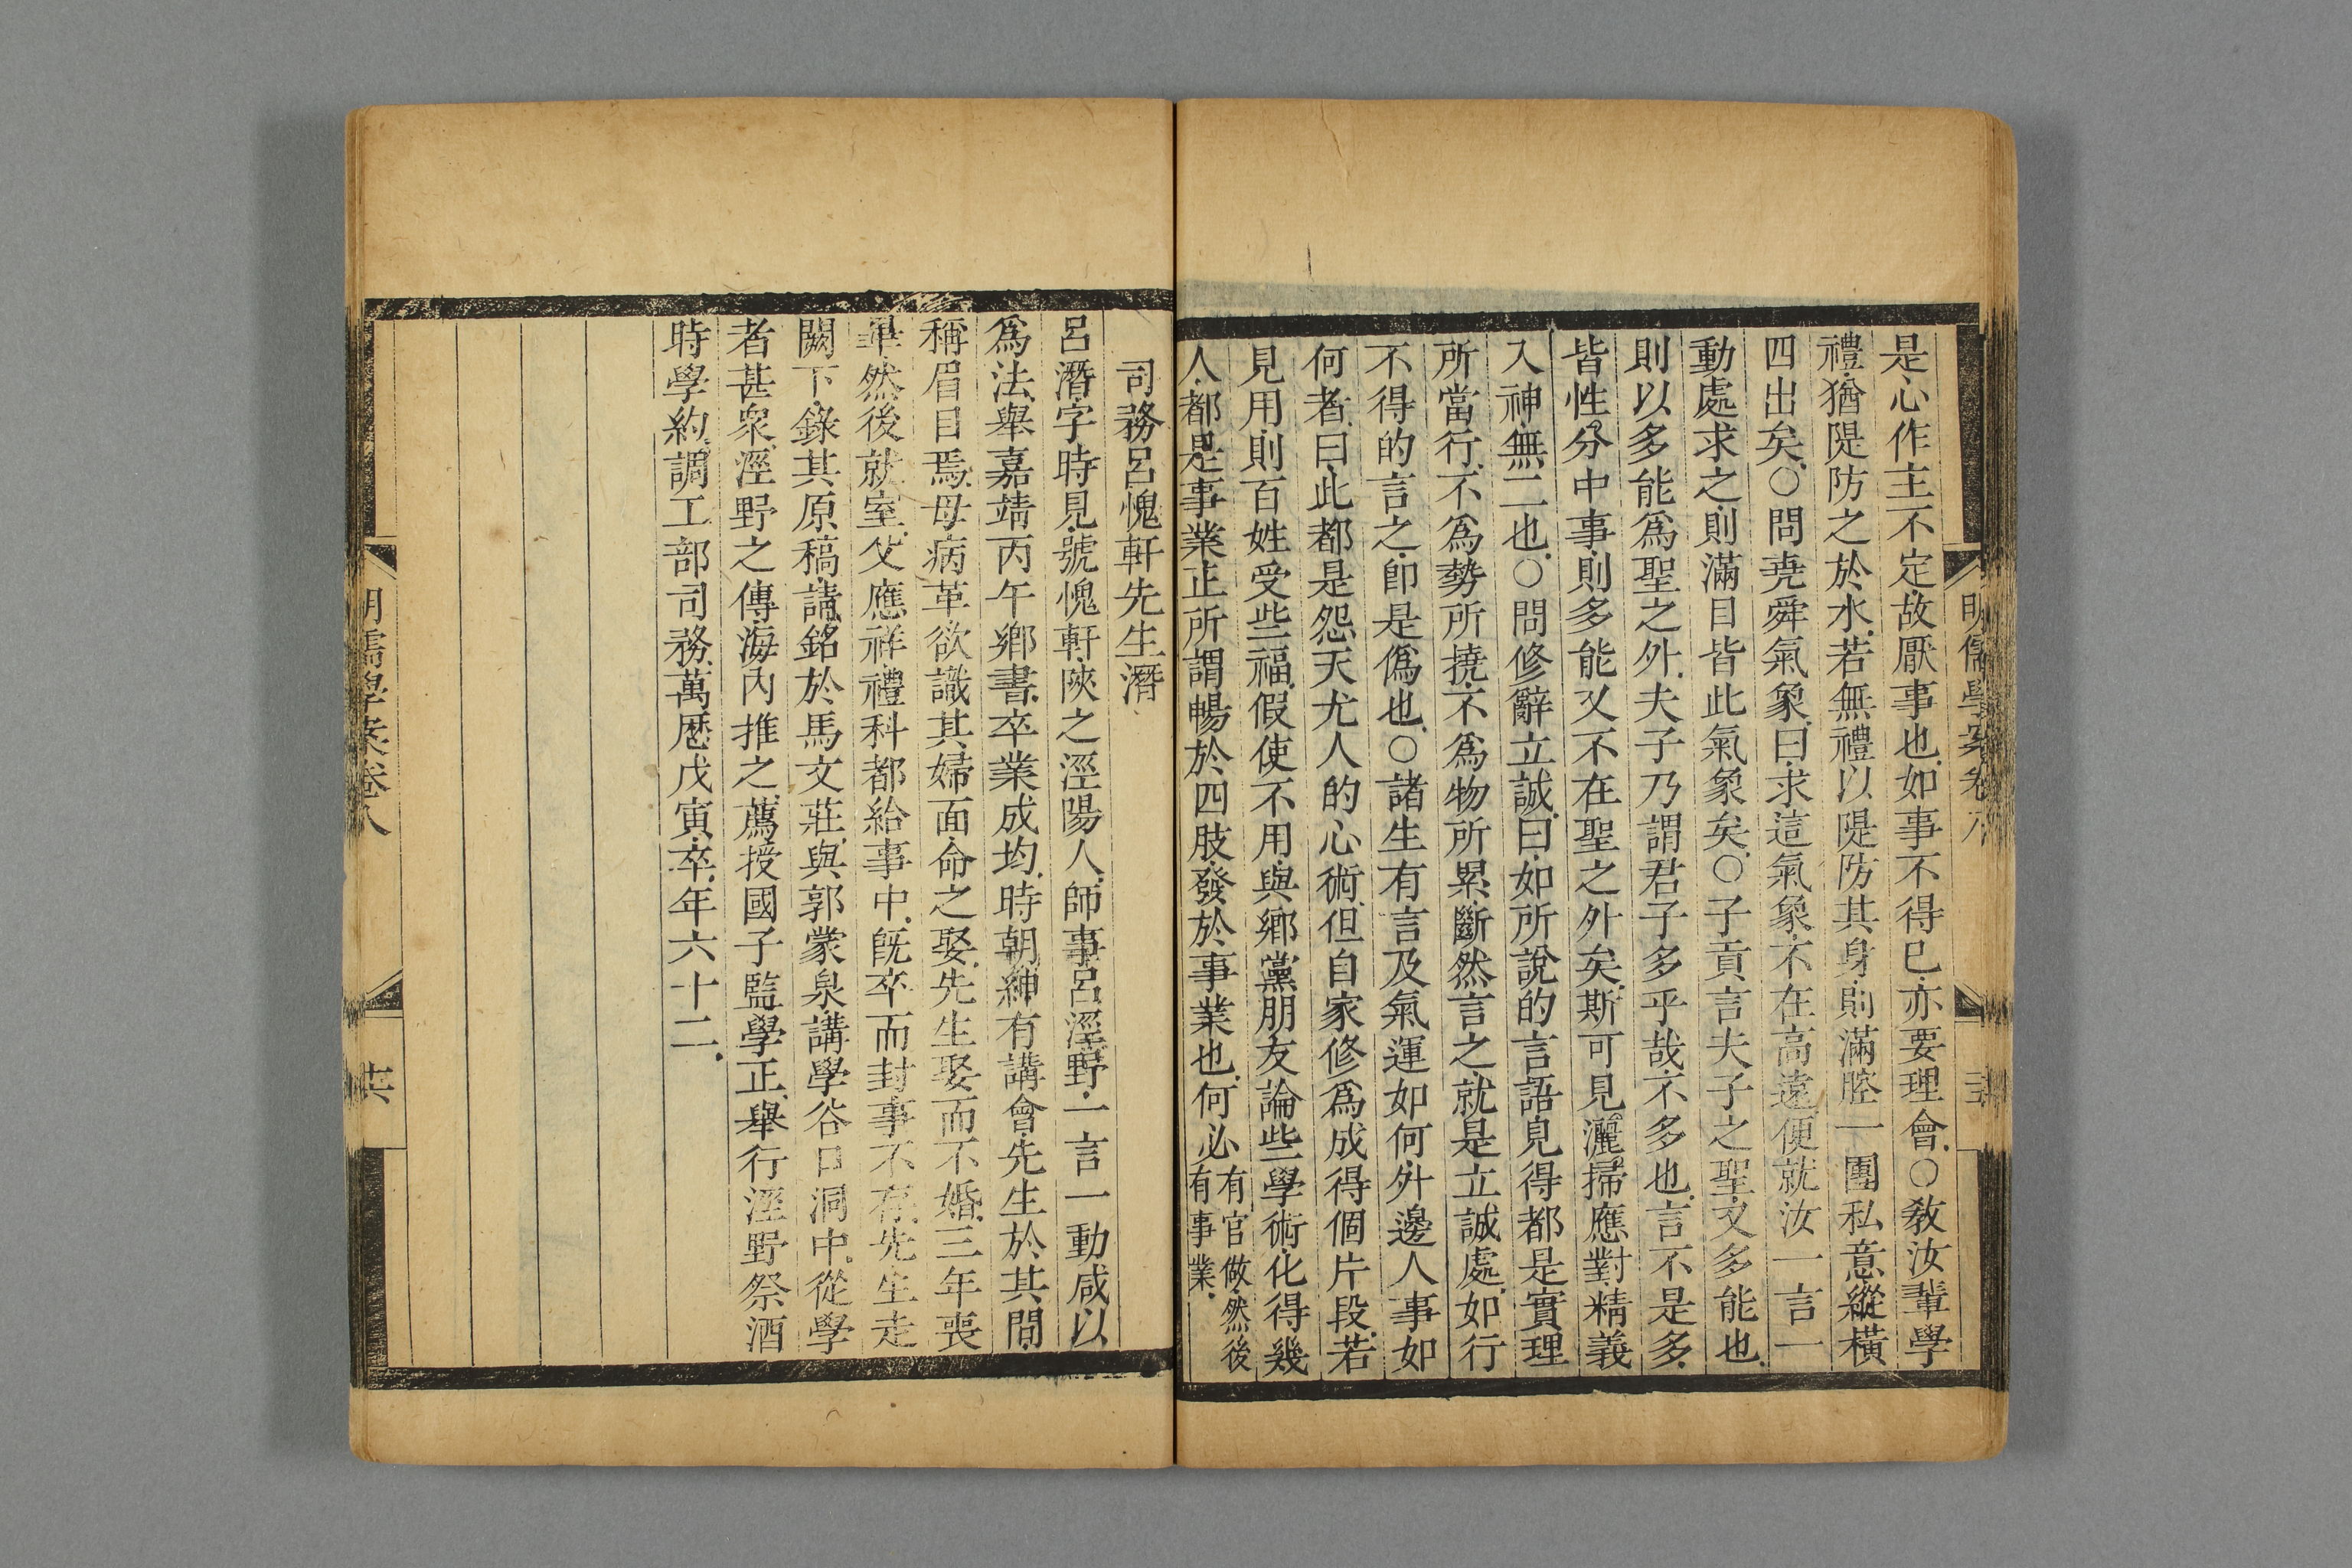 是心作主不定故厭事也如事不得已亦要理會○教汝輩學
禮猶隄防之於水若無禮以隄防其身則滿腔一團私意縱橫
四出矣○問堯舜氣象曰求這氣象不在高遠便就汝一言一
動處求之則滿目皆此氣象矣○子貢言夫子之聖又多能也
則以多能爲聖之外夫子乃謂君子多乎哉不多也言不是多
皆性分中事則多能又不在聖之外矣斯可見灑掃應對精義
入神無二也○問修辭立誠曰如所說的言語見得都是實理
所當行不爲勢所撓不爲物所累斷然言之就是立誠處如行
不得的言之卽是僞也○諸生有言及氣運如何外邊人事如
何者曰此都是怨天尤人的心術但自家修爲成得個片段若
見用則百姓受些福假使不用與鄉黨朋友論些學術化得幾
人都是事業正所謂暢於四肢發於事業也何必有官做然後有事業
明儒學案卷八
司務呂愧軒先生潛
呂潛字時見號愧軒陝之涇陽人師事呂涇野一言一動咸以
爲法舉嘉靖丙午鄉書卒業成均時朝紳有講會先生於其間
稱眉目焉母病革欲識其婦面命之娶先生娶而不婚三年喪
畢然後就室父應祥禮科都給事中旣卒而封事不存先生走
闕下錄其原稿請銘於馬文莊與郭蒙泉講學谷口洞中從學
者甚衆涇野之傳海內推之薦授國子監學正舉行涇野祭酒
時學約調工部司務萬厯戊寅卒年六十二
明儒學案卷八